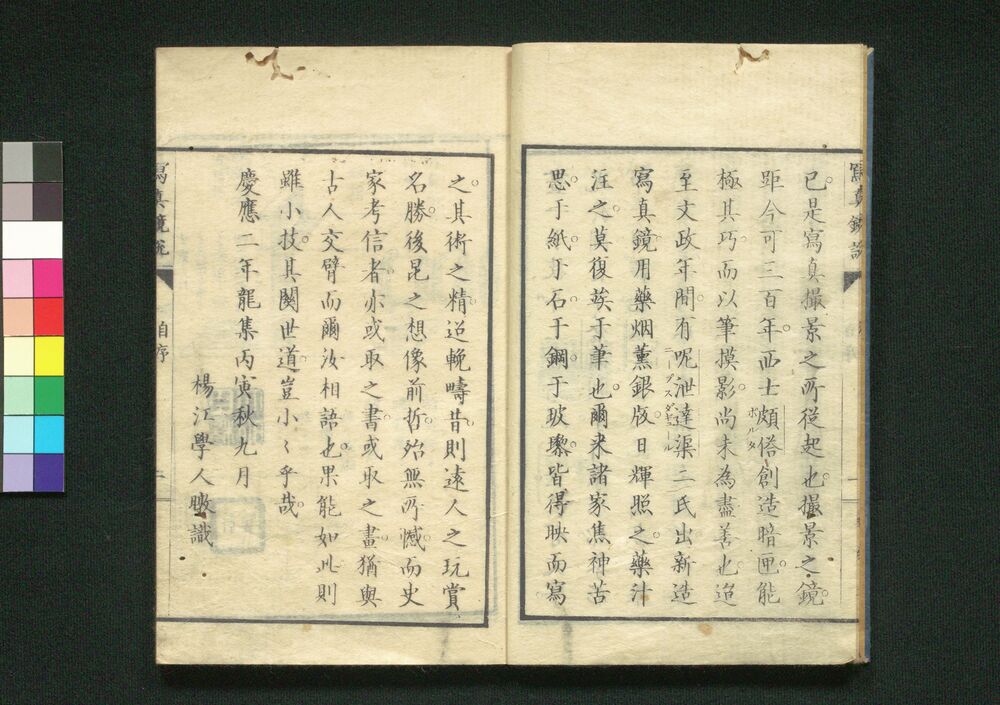 已是寫真撮景之所從起也。撮景之鏡。
距今可三百年。西士頗俗創造暗匣。能
ポルタ
極其巧。而以筆摸影。尚未為盡善也。迨
至文政年間。有呢泄達渠二氏出。新造
ニープスダゲール
寫真鏡。用藥烟薫銀版。日輝照之。藥汁
注之。莫復俟于筆也。爾来諸家焦神苦
思。于紙于石。于鋼于玻瓈。皆得映而寫
之。其術之精。迢軼疇昔。則遠人之玩賞
名勝。後昆之想像前哲。殆無所憾。而史
家考信者。亦或取之書。或取之畫。猶與
古人交臂而爾汝相語也。果能如此。則
雖小技。其関世道。豈小々乎哉。
慶應二年龍集丙寅秋九月
楊江學人 識
寫真鏡説
自序
二
寫真鏡説